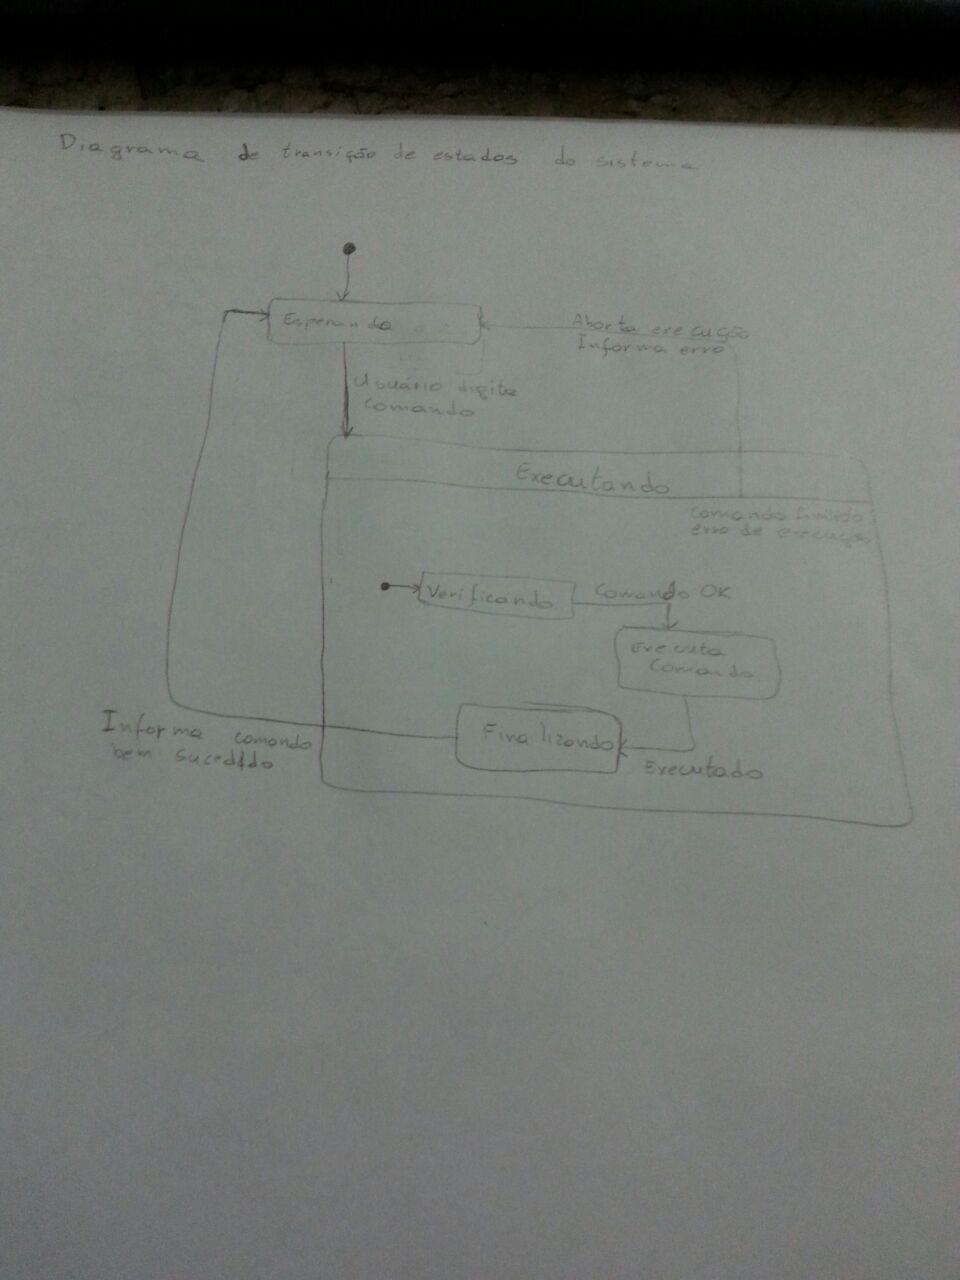 Diagrama de transição de estados do sistema
Esperando
Aborta execução
Informa erro
Usuário digita
comando
Executando
Comando
erro de execução
Verificando
Comando OK
Executa
Comando
Finalizando
Executado
Informa comando
bem sucedido